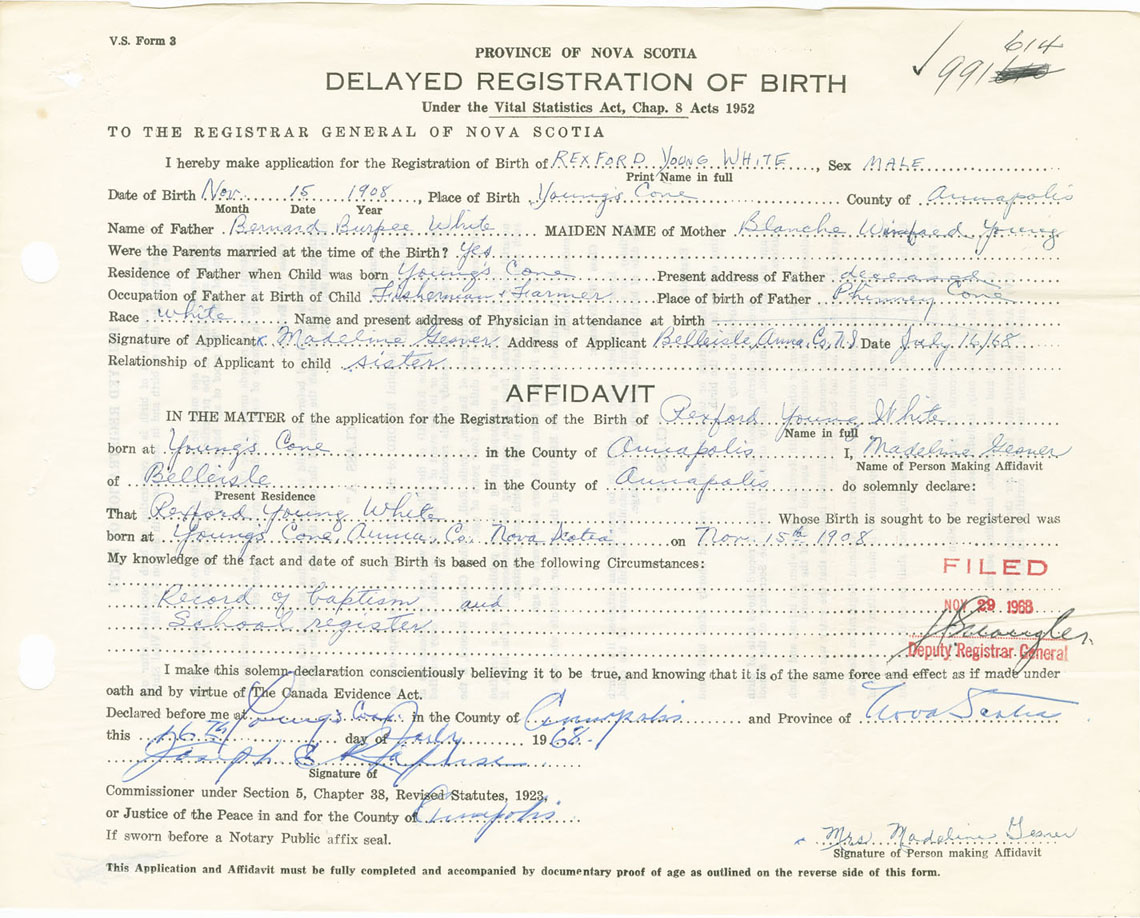 V.S. Form 3
614
✓ 991
PROVINCE OF NOVA SCOTIA
DELAYED REGISTRATION OF BIRTH
Under the Vital Statistics Act, Chap. 8 Acts 1952
TO THE REGISTRAR GENERAL OF NOVA SCOTIA
I hereby make application for the Registration of Birth of REXFORD YOUNG WHITE, Sex MALE
Print Name in full
Date of Birth Nov. 15 1908, Place of Birth Young's Cove County of Annapolis
Month Date Year
Name of Father Bernard Burpee White MAIDEN NAME of Mother Blanche Winifred Young
Were the Parents married at the time of the Birth? Yes
Residence of Father when Child was born Young's Cove Present address of Father deceased
Occupation of Father at Birth of Child Fisherman & Farmer Place of birth of Father Phinney Cove
Race White Name and present address of Physician in attendance at birth
Signature of Applicant x Madeline Gesner Address of Applicant Belleisle, Anna. Co., N.S. Date July 16/68
Relationship of Applicant to child sister
AFFIDAVIT
IN THE MATTER of the application for the Registration of the Birth of Rexford Young White
Name in full
born at Young's Cove in the County of Annapolis I, Madeline Gesner
Name of Person Making Affidavit
of Belleisle in the County of Annapolis do solemnly declare:
Present Residence
That Rexford Young White Whose Birth is sought to be registered was
born at Young's Cove, Anna. Co. Nova Scotia on Nov. 15th 1908
My knowledge of the fact and date of such Birth is based on the following Circumstances:
FILED
Record of baptism and
NOV 29 1968
School register
Deputy Registrar General
I make this solemn declaration conscientiously believing it to be true, and knowing that it is of the same force and effect as if made under
oath and by virtue of The Canada Evidence Act.
Declared before me at Young's Cove in the County of Annapolis and Province of Nova Scotia
this 16th day of July 1968
Joseph E
Signature of
Commissioner under Section 5, Chapter 38, Revised Statutes, 1923,
or Justice of the Peace in and for the County of Annapolis
If sworn before a Notary Public affix seal.
x Mrs. Madeline Gesner
Signature of Person making Affidavit
This Application and Affidavit must be fully completed and accompanied by documentary proof of age as outlined on the reverse side of this form.